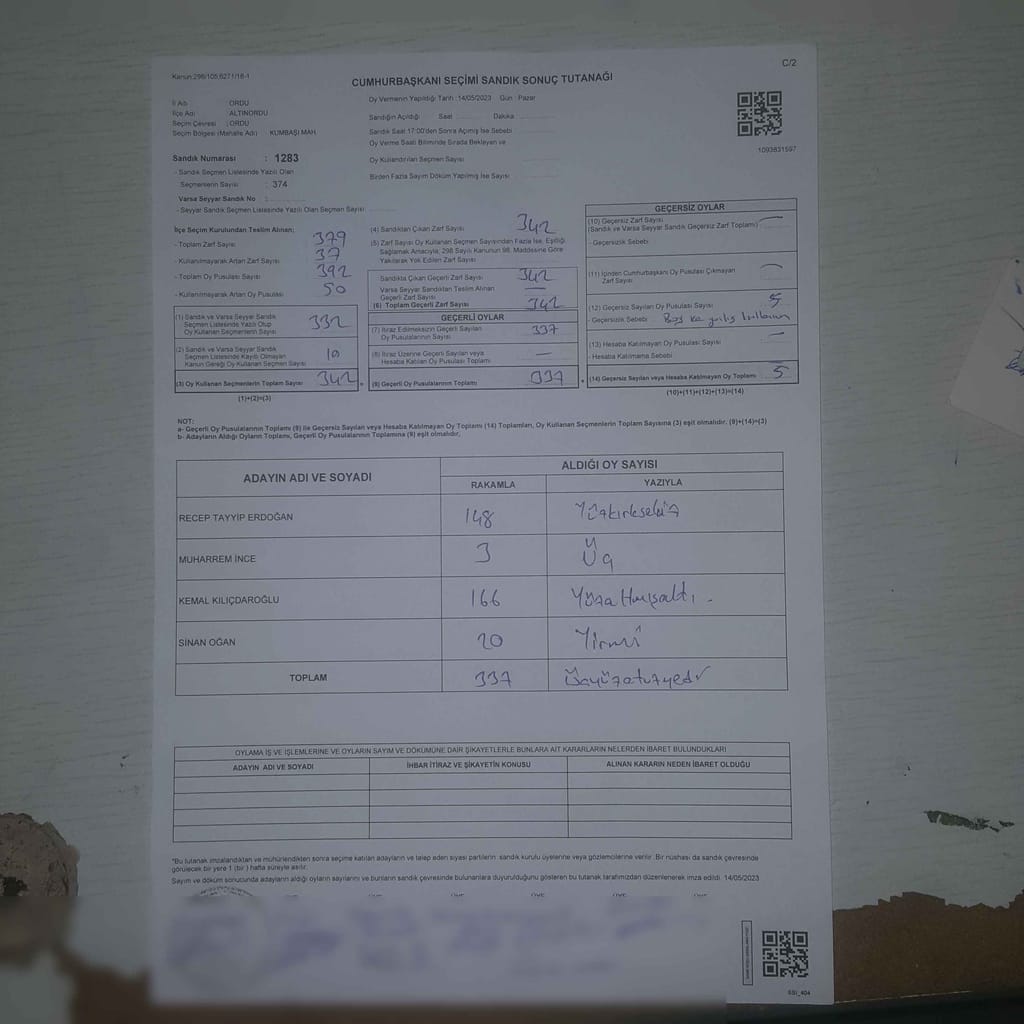 Kanun:298/105,6271/18-1
C/2
CUMHURBAŞKANI SEÇİMİ SANDIK SONUÇ TUTANAĞI
İl Adı : ORDU
İlçe Adı : ALTINORDU
Seçim Çevresi : ORDU
Seçim Bölgesi (Mahalle Adı) : KUMBAŞI MAH.
Oy Vermenin Yapıldığı Tarih :14/05/2023 Gün : Pazar
Sandığın Açıldığı Saat Dakika
Sandık Saat 17:00'den Sonra Açılmış İse Sebebi
Oy Verme Saati Bitiminde Sırada Bekleyen ve
Oy Kullandırılan Seçmen Sayısı
Birden Fazla Sayım Döküm Yapılmış İse Sayısı
1093831597
Sandık Numarası : 1283
- Sandık Seçmen Listesinde Yazılı Olan
Seçmenlerin Sayısı : 374
Varsa Seyyar Sandık No :
- Seyyar Sandık Seçmen Listesinde Yazılı Olan Seçmen Sayısı
İlçe Seçim Kurulundan Teslim Alınan;
- Toplam Zarf Sayısı 379
- Kullanılmayarak Artan Zarf Sayısı 37
- Toplam Oy Pusulası Sayısı 392
- Kullanılmayarak Artan Oy Pusulası 50
(1) Sandık ve Varsa Seyyar Sandık
Seçmen Listesinde Yazılı Olup
Oy Kullanan Seçmenlerin Sayısı 332
(2) Sandık ve Varsa Seyyar Sandık
Seçmen Listesinde Kayıtlı Olmayan
Kanun Gereği Oy Kullanan Seçmen Sayısı 10
(3) Oy Kullanan Seçmenlerin Toplam Sayısı 342
(1)+(2)=(3)
(4) Sandıktan Çıkan Zarf Sayısı 342
(5) Zarf Sayısı Oy Kullanan Seçmen Sayısından Fazla İse, Eşitliği
Sağlamak Amacıyla, 298 Sayılı Kanunun 98. Maddesine Göre
Yakılarak Yok Edilen Zarf Sayısı
Sandıkta Çıkan Geçerli Zarf Sayısı 342
Varsa Seyyar Sandıktan Teslim Alınan
Geçerli Zarf Sayısı —
(6) Toplam Geçerli Zarf Sayısı 342
GEÇERLİ OYLAR
(7) İtiraz Edilmeksizin Geçerli Sayılan
Oy Pusulasının Sayısı 337
(8) İtiraz Üzerine Geçerli Sayılan veya
Hesaba Katılan Oy Pusulası Toplamı —
(9) Geçerli Oy Pusulalarının Toplamı 337
GEÇERSİZ OYLAR
(10) Geçersiz Zarf Sayısı
(Sandık ve Varsa Seyyar Sandık Geçersiz Zarf Toplamı) —
- Geçersizlik Sebebi
(11) İçinden Cumhurbaşkanı Oy Pusulası Çıkmayan
Zarf Sayısı —
(12) Geçersiz Sayılan Oy Pusulası Sayısı 5
- Geçersizlik Sebebi Boş ve yanlış kullanım
(13) Hesaba Katılmayan Oy Pusulası Sayısı —
- Hesaba Katılmama Sebebi
(14) Geçersiz Sayılan veya Hesaba Katılmayan Oy Toplamı 5
(10)+(11)+(12)+(13)=(14)
NOT:
a- Geçerli Oy Pusulalarının Toplamı (9) ile Geçersiz Sayılan veya Hesaba Katılmayan Oy Toplamı (14) Toplamları, Oy Kullanan Seçmenlerin Toplam Sayısına (3) eşit olmalıdır. (9)+(14)=(3)
b- Adayların Aldığı Oyların Toplamı, Geçerli Oy Pusulalarının Toplamına (9) eşit olmalıdır.
ADAYIN ADI VE SOYADI
ALDIĞI OY SAYISI
RAKAMLA YAZIYLA
RECEP TAYYİP ERDOĞAN 148 Yüzkırksekiz
MUHARREM İNCE 3 Üç
KEMAL KILIÇDAROĞLU 166 Yüzaltmışaltı.
SİNAN OĞAN 20 Yirmi
TOPLAM 337 Üçyüzotuzyedi
OYLAMA İŞ VE İŞLEMLERİNE VE OYLARIN SAYIM VE DÖKÜMÜNE DAİR ŞİKAYETLERLE BUNLARA AİT KARARLARIN NELERDEN İBARET BULUNDUKLARI
ADAYIN ADI VE SOYADI İHBAR İTİRAZ VE ŞİKAYETİN KONUSU ALINAN KARARIN NEDEN İBARET OLDUĞU
*Bu tutanak imzalandıktan ve mühürlendikten sonra seçime katılan adayların ve talep eden siyasi partilerin sandık kurulu üyelerine veya gözlemcilerine verilir. Bir nüshası da sandık çevresinde
görülecek bir yere 1 (bir ) hafta süreyle asılır.
Sayım ve döküm sonucunda adayların aldığı oyların sayılarını ve bunların sandık çevresinde bulunanlara duyurulduğunu gösteren bu tutanak tarafımızdan düzenlenerek imza edildi. 14/05/2023
ÜYE ÜYE ÜYE ÜYE ÜYE
SSI_404